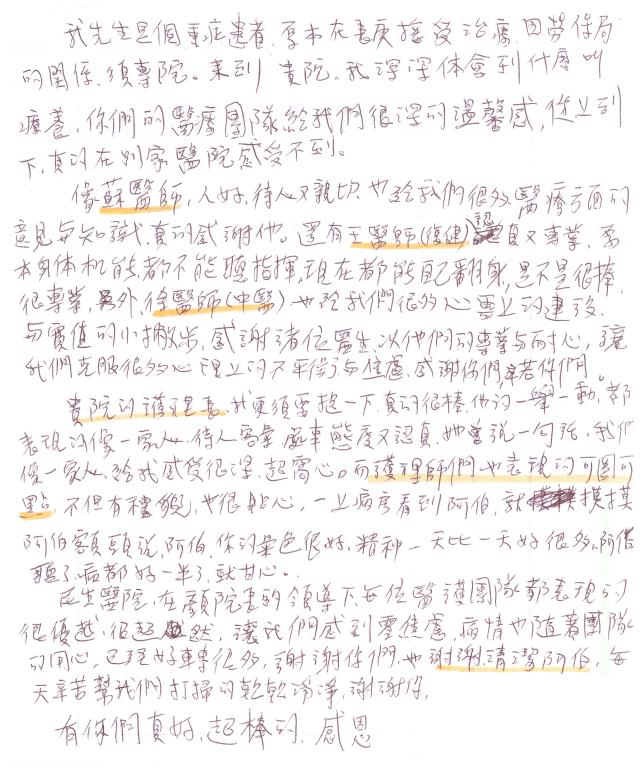 我先生是個重症患者,原本在長庚接受治療,因勞保局
的關係,須轉院。來到 貴院,我深深体會到什麼叫
療養,你們的醫療團隊給我們很深的溫馨感,從上到
下,真的在別家醫院感受不到。
像蘇醫師,人好,待人又親切,也給我們很多醫療方面的
意見与知識,真的感謝他。還有王醫師(復健)認真又專業,原
本身体机能都不能聽指揮,現在都能自己翻身,是不是很棒,
很專業,另外,徐醫師(中醫)也給我們很多心靈上的建設,
与寶值的小撇步,感謝諸位醫生,以他們的專業与耐心,讓
我們克服很多心理上的不平衡与焦慮,感謝你們,辛苦你們。
貴院的護理長,我更須要提一下,真的很棒,他的一舉一動,都
表現的像一家人,待人客氣,處事態度又認真,她曾說一句話,我們
像一家人,給我感受很深,超窩心。而護理師們也表現的可圈可
點,不但有禮貌,也很貼心,一上病房看到阿伯,就摸摸
阿伯額頭說,阿伯,你的氣色很好,精神一天比一天好很多,阿伯
聽了病都好一半了,就甘心。
民生醫院,在顏院長的領導下,每位醫護團隊都表現的
很優越,很超然,讓我們感到零焦慮,病情也隨著團隊
的用心,已經好轉很多,謝謝你們,也謝謝清潔阿伯,每
天辛苦幫我們打掃的乾乾淨淨,謝謝你,
有你們真好,超棒的,感恩